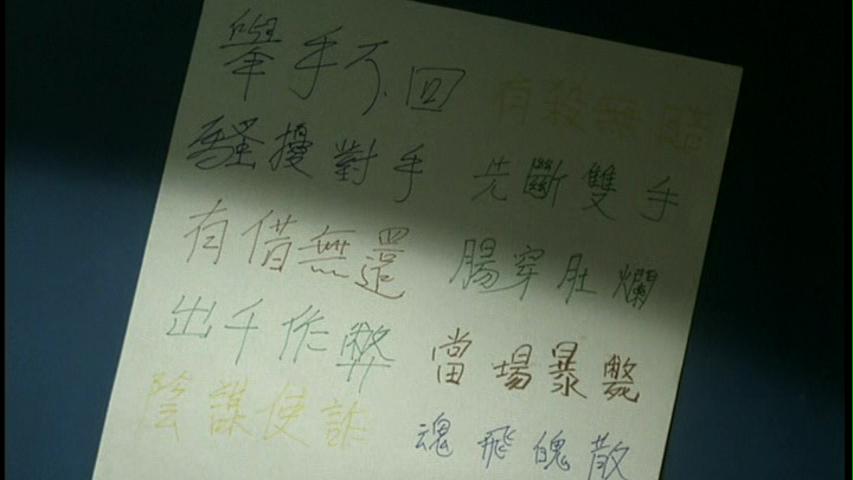 舉手不回 有殺無賠
騷擾對手 先斷雙手
有借無還 腸穿肚爛
出千作弊 當場暴斃
陰謀使詐 魂飛魄散